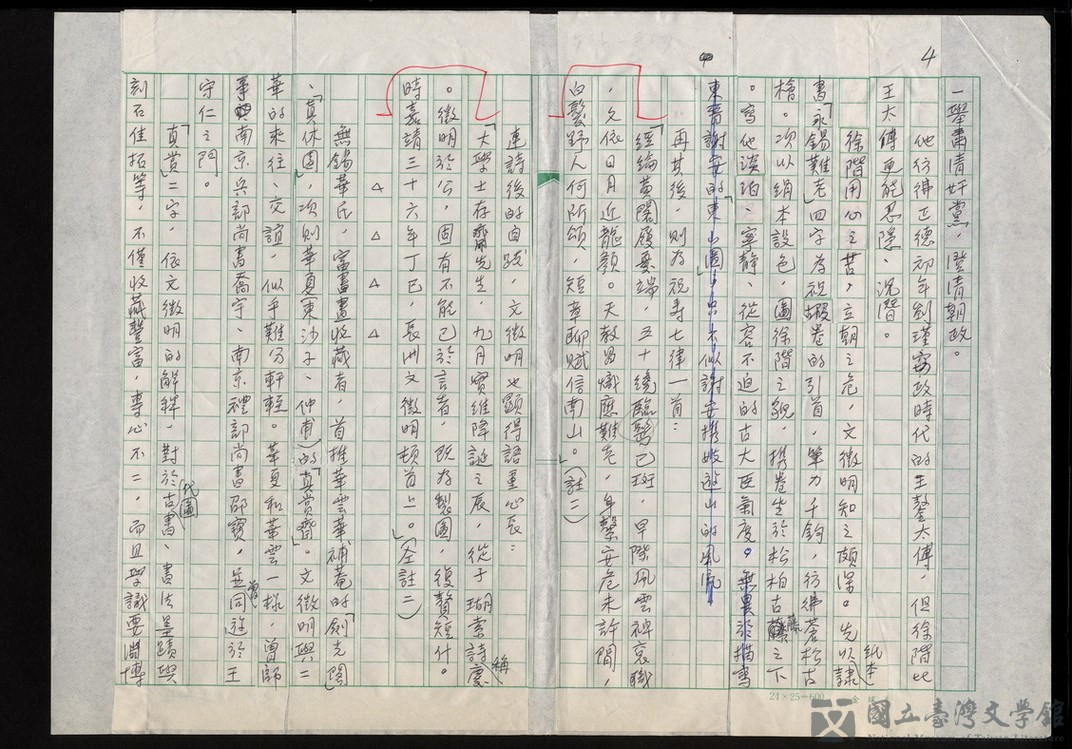 4
一舉肅清奸黨,澄清朝政。
他彷彿正德初年劉瑾竊政時代的王鏊太傅,但徐階比
王太傅更能忍隱、沉潛。
徐階用心之苦,立朝之危,文徵明知之頗深。先以紙本隸
書「永錫難老」四字為祝嘏卷的引首,筆力千鈞,彷彿蒼松古
檜。次以絹本設色,圖徐階之貌,携卷坐於松柏古藤之下
。寫他淡泊、寧靜、從容不迫的古大臣氣度。無異於描寫
東晉謝安的「東山圖」,只不似謝安携妓遊山的風流
再其後,則為祝壽七律一首:
「經綸黃閣履要端,五十纔臨鬢已斑,早際風雲裨袞職
,久依日月近龍顏。天教昌熾應難老,身繫安危未許閒,
白髮野人何所頌,短章聊賦信南山。」(註二)
連詩後的自跋,文徵明也顯得語重心長:
「大學士存齋先生,九月實維降誕之辰,從子瑚索詩稱慶
。徵明於公,固有不能已於言者,既為製圖,復贅短什。
時嘉靖三十六年丁巳,長洲文徵明頓首上。」(仝註二)
△ △ △ △
無錫華氏,富書畫收藏者,首推華雲華補菴的「劍光閣
」、「真休園」,次則華夏(東沙子、仲甫)的「真賞齋」。文徵明與二
華的來往、交誼,似乎難分軒輊。華夏和華雲一樣,曾師
事南京兵部尚書喬宇、南京禮部尚書邵寶,並同遊於王
守仁之門。
「真賞」二字,依文徵明的解釋,對於古代圖書、書法墨蹟與
刻石佳拓等,不僅收藏豐富,專心不二,而且學識要淵博
24×25=600
國立臺灣文學館
National Museum of Taiwan Literature